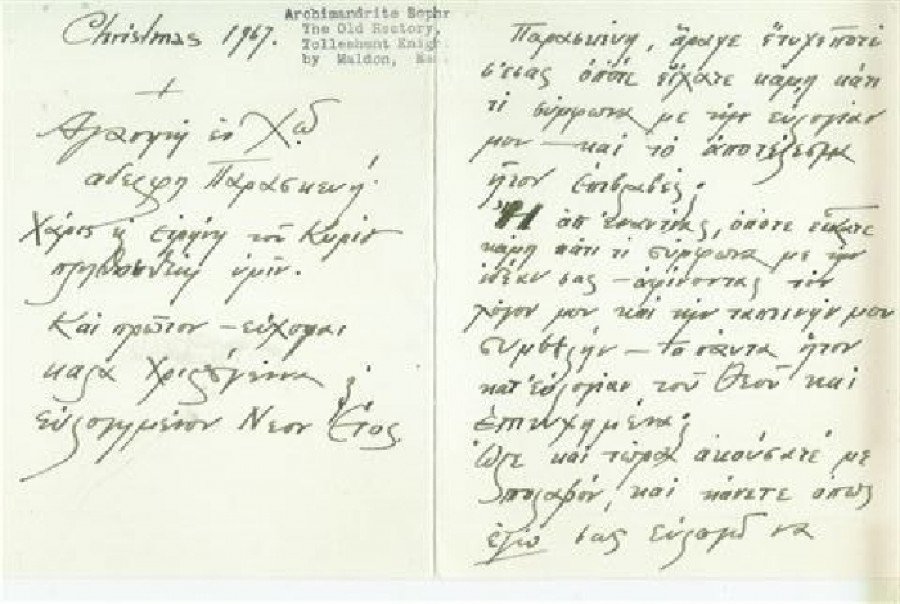 Christmas 1967.
Archimandrite Sophr
The Old Rectory,
Tolleshunt Knig
by Maldon,
+
Ἀγαπητὴ ἐν Χῷ
ἀδελφὴ Παρασκευή·
Χάρις κ εἰρήνη τοῦ Κυρίου
πληθυνθείη ὑμῖν.
Καὶ πρῶτον – εὔχομαι
καλὰ Χριστούγεννα
εὐλογημένον Νέον Ἔτος.
Παρασκευή, ἄραγε ἔτυχε ποτὲ
σ' ἐσᾶς ὁπότε εἴχατε κάμη κάτι
τι σύμφωνα με τὴν εὐλογίαν
μου – καὶ τὸ ἀποτέλεσμα
ἦτον ἐπιβλαβές;
Ἢ ἀπ' ἐναντίας, ὁπότε εἴχατε
κάμη κάτι τι σύμφωνα με τὴν
ἰδέαν σας – ἀφίνοντας τὸν
λόγον μου καὶ τὴν ταπεινήν μου
συμβουλήν – τὸ πάντα ἦτον
κατ' εὐλογίαν τοῦ Θεοῦ καὶ
ἐπιτυχημένα;
Ὥστε καὶ τώρα ἀκούσατέ με
καὶ κάνετε ὅπως
ἐγὼ σας εὐλογῶ να